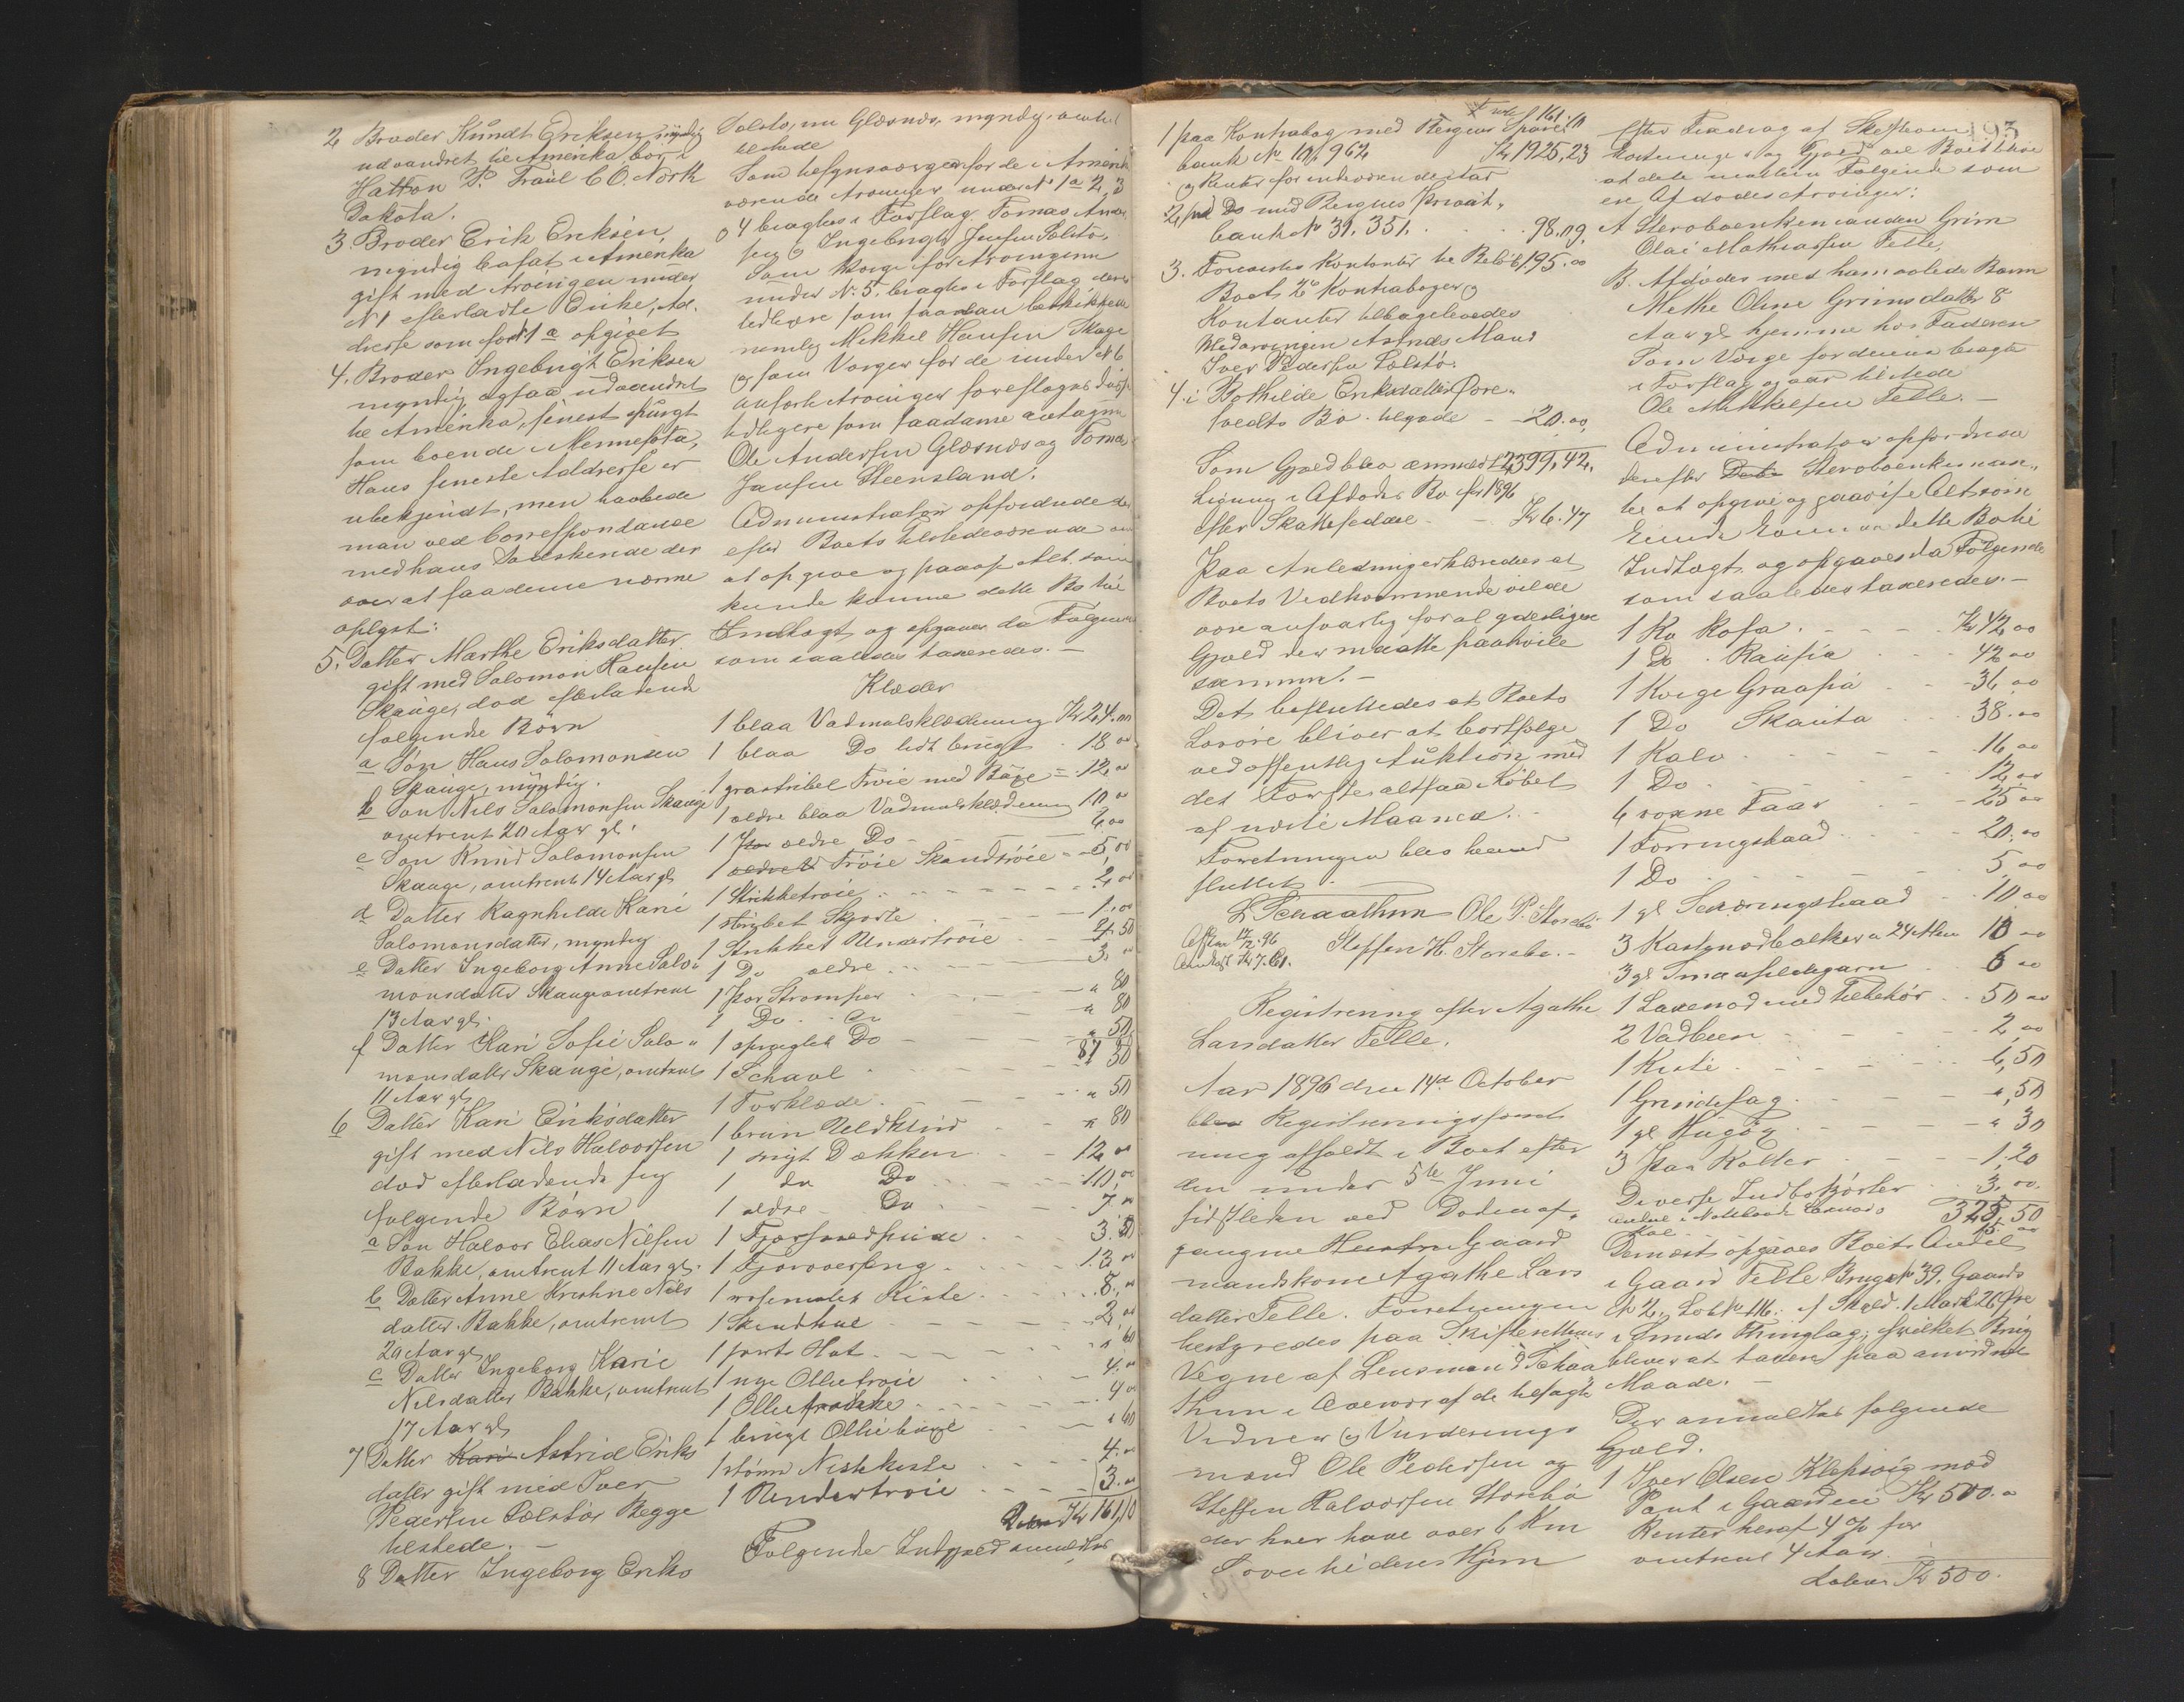 2 Broder Knudt Eriksen myndig
udvandret til Amerika bor i
Hatton P. Trail C.O. North
Dakota.
3 Broder Erik Eriksen,
myndig bosat i Amerika
gift med Arvingen under
N 1 efterladte Enke, Ad-
dresse som for 1 a opgivet
4. Broder Ingebrigt Eriksen
myndig ogsaa udvandret
til Amerika, senest spurgt
som boende i Mennesota,
Hans seneste Addresse er
ubekjendt, men haabede
man ved Correspondance
med hans Søskende der
over at faa denne nærme
oplyst:
5. Datter Marthe Eriksdatter
gift med Salomon Hansen
Skauge, død efterladende
følgende Børn
a Søn Hans Salomonsen
Skauge, myndig.
b Søn Nils Salomonsen Skauge
omtrent 20 Aar gl.
c Søn Knud Salomonsen
Skauge, omtrent 14 Aar gl
d Datter Ragnhilde Karie
Salomonsdatter, myndig
e Datter Ingeborg Anne Salo-
monsdatter Skauge omtrent
13 Aar gl.
f Datter Kari Sofie Salo-
monsdatter Skauge, omtrent
11 Aar gl
6 Datter Kari Eriksdatter
gift med Nils Halvorsen
død efterladende sig
følgende Børn
a Søn Halvor Elias Nilsen
Bakke, omtrent 11 Aar gl.
b Datter Anne Kristine Nils
datter Bakke, omtrent
20 Aar gl
c Datter Ingeborg Karie
Nilsdatter Bakke, omtrent
17 Aar gl
7 Datter Kari Astrid Eriks
datter gift med Iver
Pedersen Solstø. Begge
tilstede. —
8 Datter Ingeborg Eriks
Solstø, nu Glesnæs, myndig, ombe
tilstede
Som tilsynsværger for de i Amerik
værende Arvinger under No 1a 2, 3
og 4 bragtes i Forslag Tomas Ander
sen & Ingebrigt Jensen Solstø,
Som Værge for Arvingerne
under No 5. bragtes i Forslag deres
tidligere som saadan beskikkede
nemlig Mikkel Hansen Skage
og som Værger for de under No 6
anførte Arvinger foresloges disse
tidligere som saadanne antagne
Ole Andersen Glesnæs og Tomas
Jansen Steensland.
Administrator opfordrede der
efter Boets tilstedeværende om
at opgive og paavise Alt som
kunde komme dette Bo til
Indtægt og opgaves da Følgende
som saaledes taxeredes. —
Klæder
1 blaa Vadmelsklædning Kr 24.00
1 blaa Do lidt brugt . 18 00
1 graastribet Trøie med Buxe - 12 00
1 ældre blaa Vadmelsklædning 10 00
1 Par ældre Do - 6 00
1 ældre Trøie Skindtrøie - 5,00
1 Strikketrøie 2,00
1 stribet Skjorte 1.00
1 Strikket Undertrøie 2.50
1 Do ældre 3. 00
1 Par Strømper " 80
1 Do. do " 80
1 spraglet Do " 50
1 Schavl
1 Forklæde " 50
1 brun Uldklud " 80
1 nyt Dækken 12 00
1 do Do 10,00
1 ældre Do 7 00
1 Fjærhovedpude 3.50
1 Fjæroverseng 12 00
1 rosemalet Kiste 8,00
1 Skindhue 2,00
1 sort Hat " 60
1 nye Olietrøie 4 00
1 Oliefrakke 4 00
1 brugt Oliebuxe " 60
1 større Nistkiste 4.00
1 Undertrøie 3.00
Kr 161,10
Følgende Indgjæld anmeldtes
193
161.10
1 paa Kontrabog med Bergens Spare-
bank No 101,962 Kr 1925,23
og Renter for indeværende Aar
2 paa Do med Bergens Privat-
bank No 31,351. 98,09
3. Forvistes Kontanter til Beløb 195.00
Boets 2 Kontrabøger og
Kontanter tilbageleveredes
Medarvingen Astrids Mand
Iver Pedersen Solstø.
4. i Bothilde Eriksdatter Fore-
svedts Bo. tilgode - 20.00
Som Gjæld blev anmeldt 2399,42.
Ligning i Afdødes Bo for 1896
efter Skatteseddel - Kr 6.47
Paa Anledning erklæredes at
Boets Vedkommende vilde
være ansvarlig for al gyldig
Gjæld der maatte paahvile
samme. —
Det besluttedes at Boets
Løsøre bliver at bortsælge
ved offentlig Auktion med
det Første altsaa Købet
af næste Maaned. —
Forretningen blev hermed
sluttet.
L Schaathun Ole P. Storebø
Steffen H. Storebø. —
Registrering efter Agathe
Larsdatter Telle.
Aar 1896 den 14de October
blev Registreringsforret
ning afholdt i Boet efter
den under 5te Juni
sidstleden ved Døden af-
gangne Hustru Gaard
mandskone Agathe Lars
datter Telle. Forretningen
bestyredes paa Skifterettens
Vegne af Lensmand Schaa
thun i Overvær af de tilsagte
Vidner og Vurderings
mænd Ole Pedersen og
Steffen Halvorsen Storebø
der hver have over 6 Km
Søvei til deres Hjem
Efter Fradrag af Skifteom
kostninger og Gjæld vil Boet blive
at dele mellem Følgende som
en Afdødes Arvinger:
A Sterboenkemanden Grim
Olai Mathiassen Telle.
B. Afdødes med ham avlede Barn
Methe Oline Grimsdatter 8
Aar gl hjemme hos Faderen
Som Værge for denne bragte
i Forslag og var tilstede
Ole Mikkelsen Telle. —
Administrator opfordrede
derefter Sterboenkeman-
den at opgive og paavise Alt som
kunde komme dette Bo til
Indtægt og opgaves da Følgende
som saaledes taxeredes. —
1 Ko Rosa Kr 42,00
1 Do. Raufia 42 00
1 Kvige Graafia 36 00
1 Do Skauta 38.00
1 Kalv 16,00
1 Do 12,00
6 voxne Faar 25 00
1 Færingsbaad 20.00
1 Do 5,00
1 gl Sexæringsbaad 10,00
3 Kastenodbolker a 24 Alen 10 00
3 gl Smaasildegarn 6 00
1 Laxenod med Tilbehør 50 00
2 Vadbeen 2,00
1 Kiste 6,50
1 Grindesag ",50
1 gl Hugøx " 30
3 Par Kalter 1.20
Diverse Indbo 3,00
325,50
Dernæst opgaves Boets Andel
i Gaard Telle Brugs No 39, Gaards
No 2, Løbe No 116. af Skyld 1 Mark 26 Øre
i Sunds Thinglag, hvilket Brug
bliver at taxere paa anordnet
Maade. —
Der anmeldtes følgende
Gjæld.
1 Iver Olsen Klepsvig mod
Pant i Gaarden Kr 500.00
Renter heraf 4 % for
omtrent 4 Aar.
Kr 500.